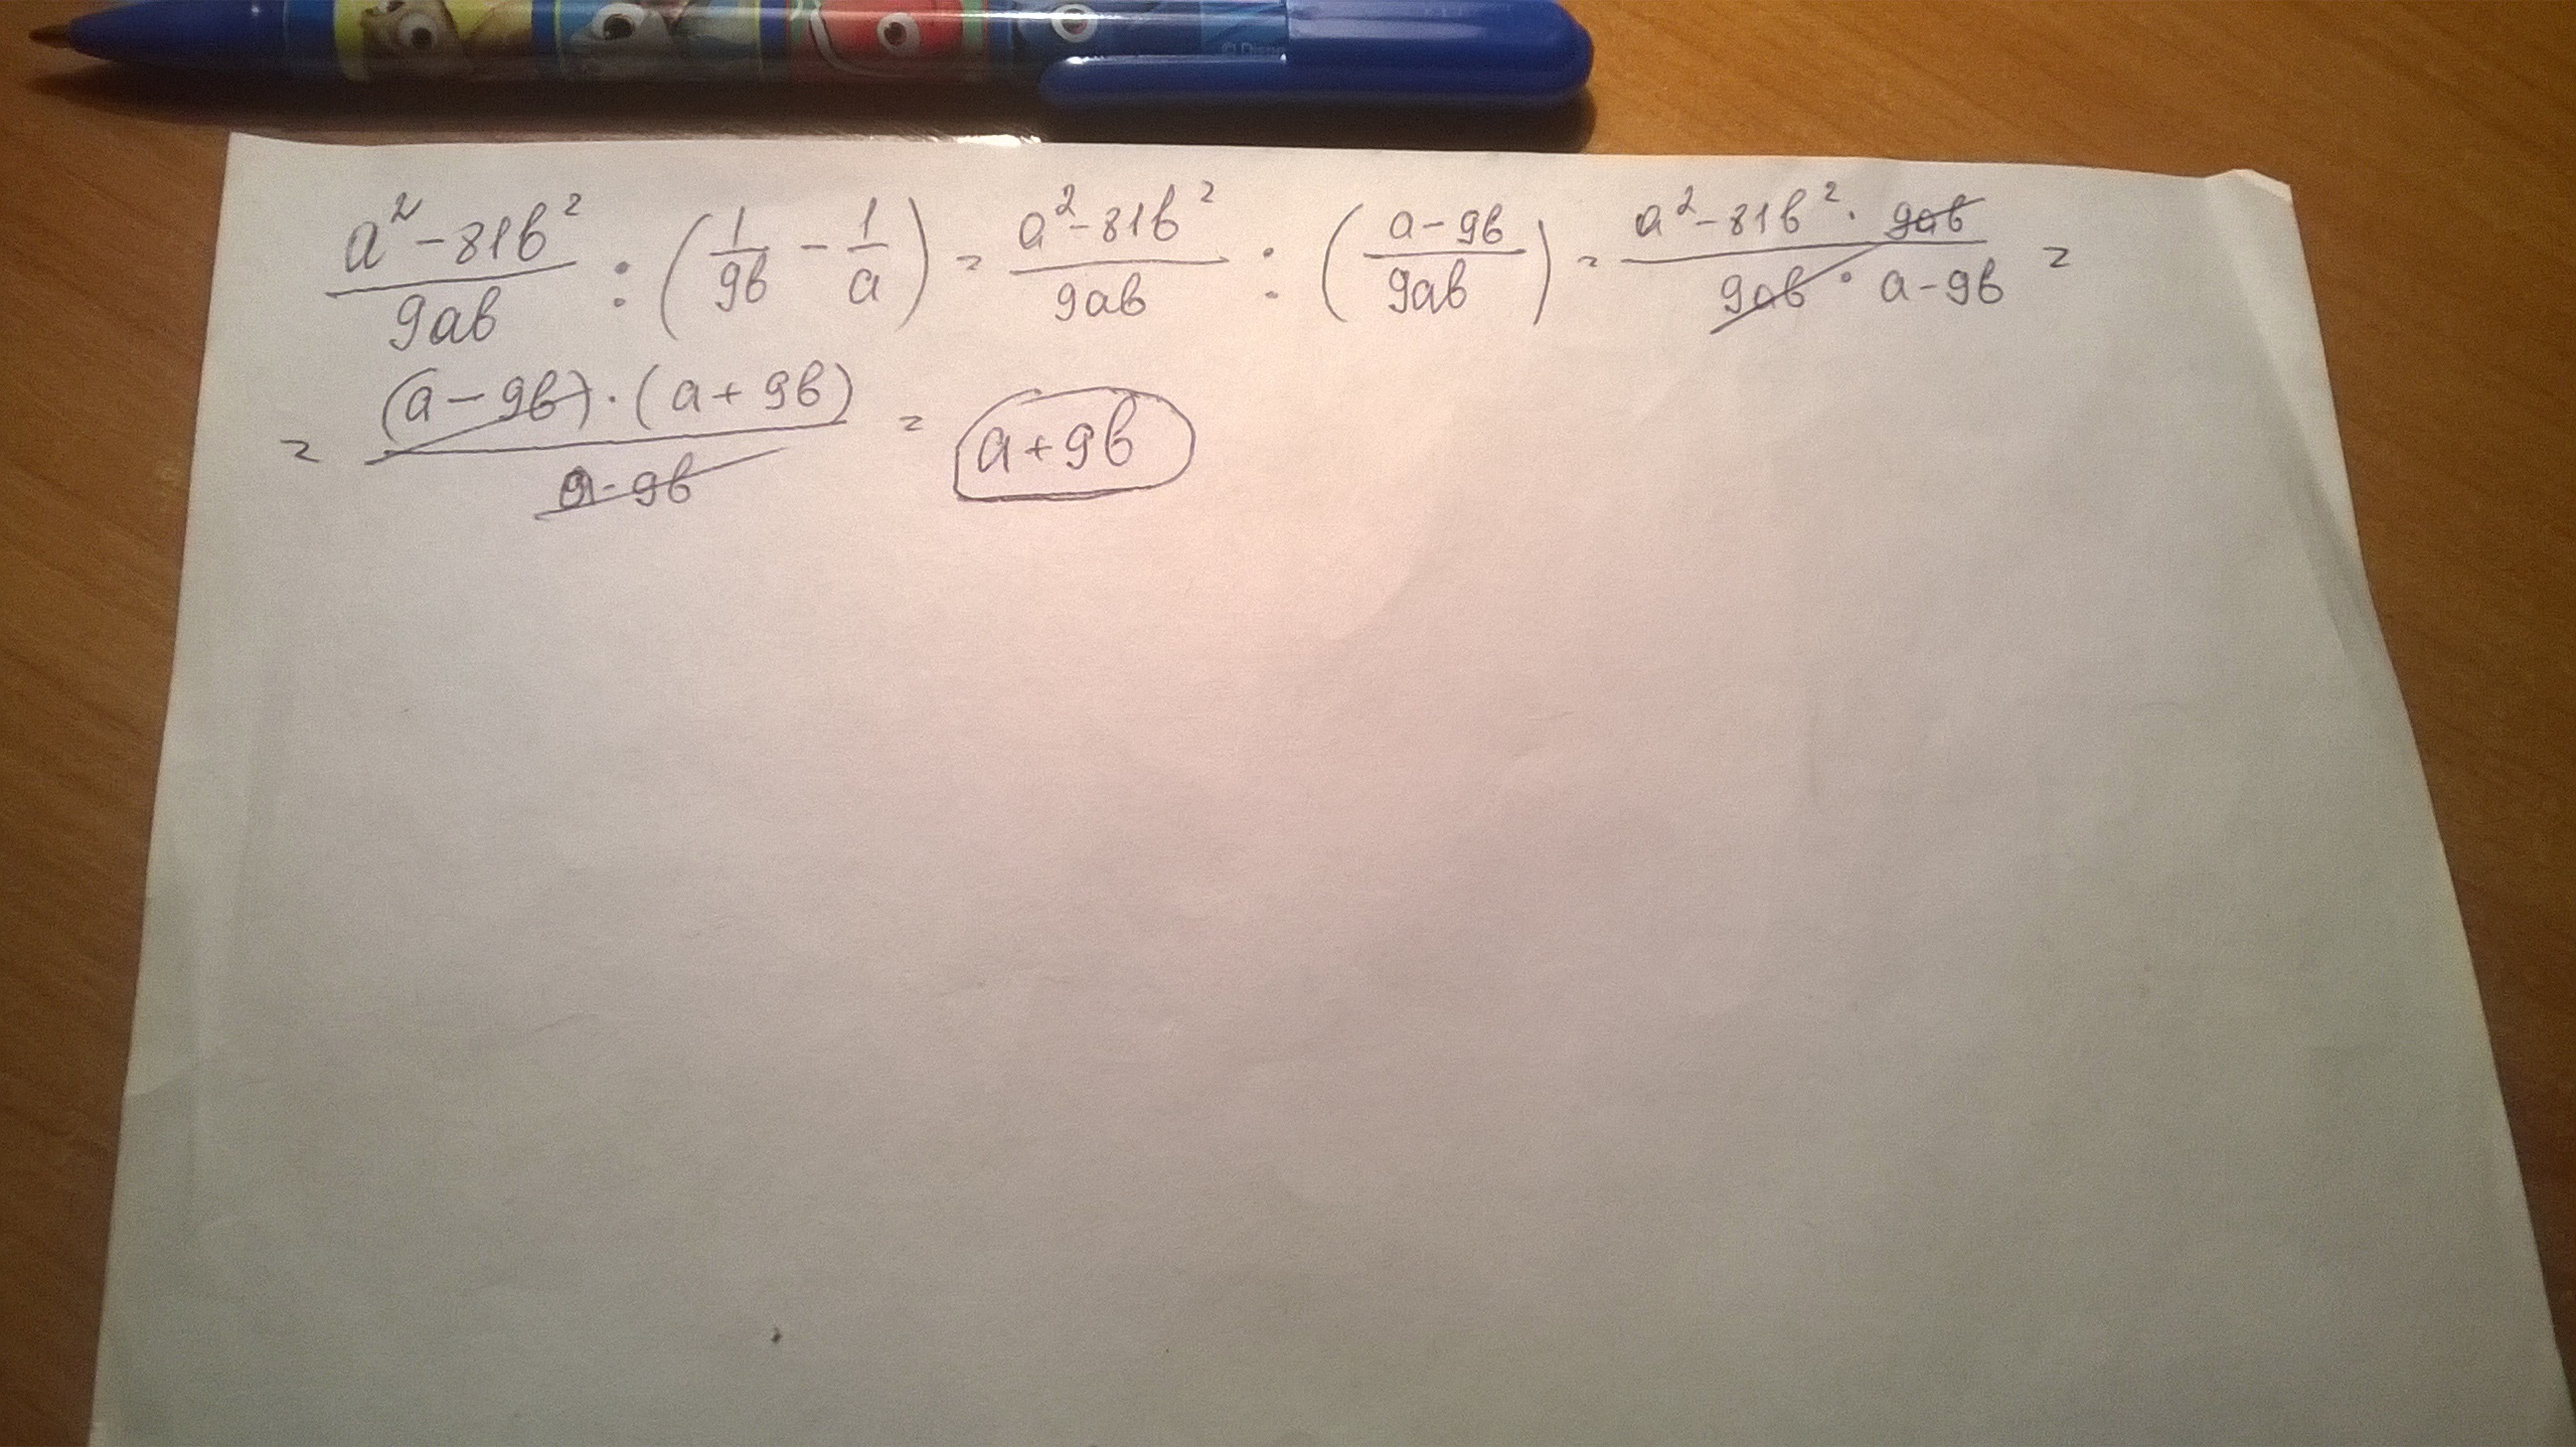 © Disney
(a² - 81b²)/(9ab) : (1/(9b) - 1/a) = (a² - 81b²)/(9ab) : ((a - 9b)/(9ab)) = (a² - 81b² · 9ab)/(9ab · a - 9b) =
= ((a - 9b) · (a + 9b))/(a - 9b) = a + 9b